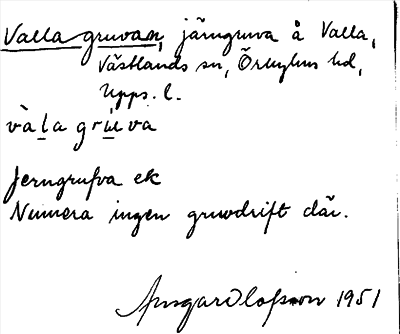 Valla gruvan, järngruva å Valla,
Västlands sn, Örbyhus hd,
Upps. l.
vàla gru̇va
Jerngrufva ek
Numera ingen gruvdrift där.
Ansgar Olofsson 1951